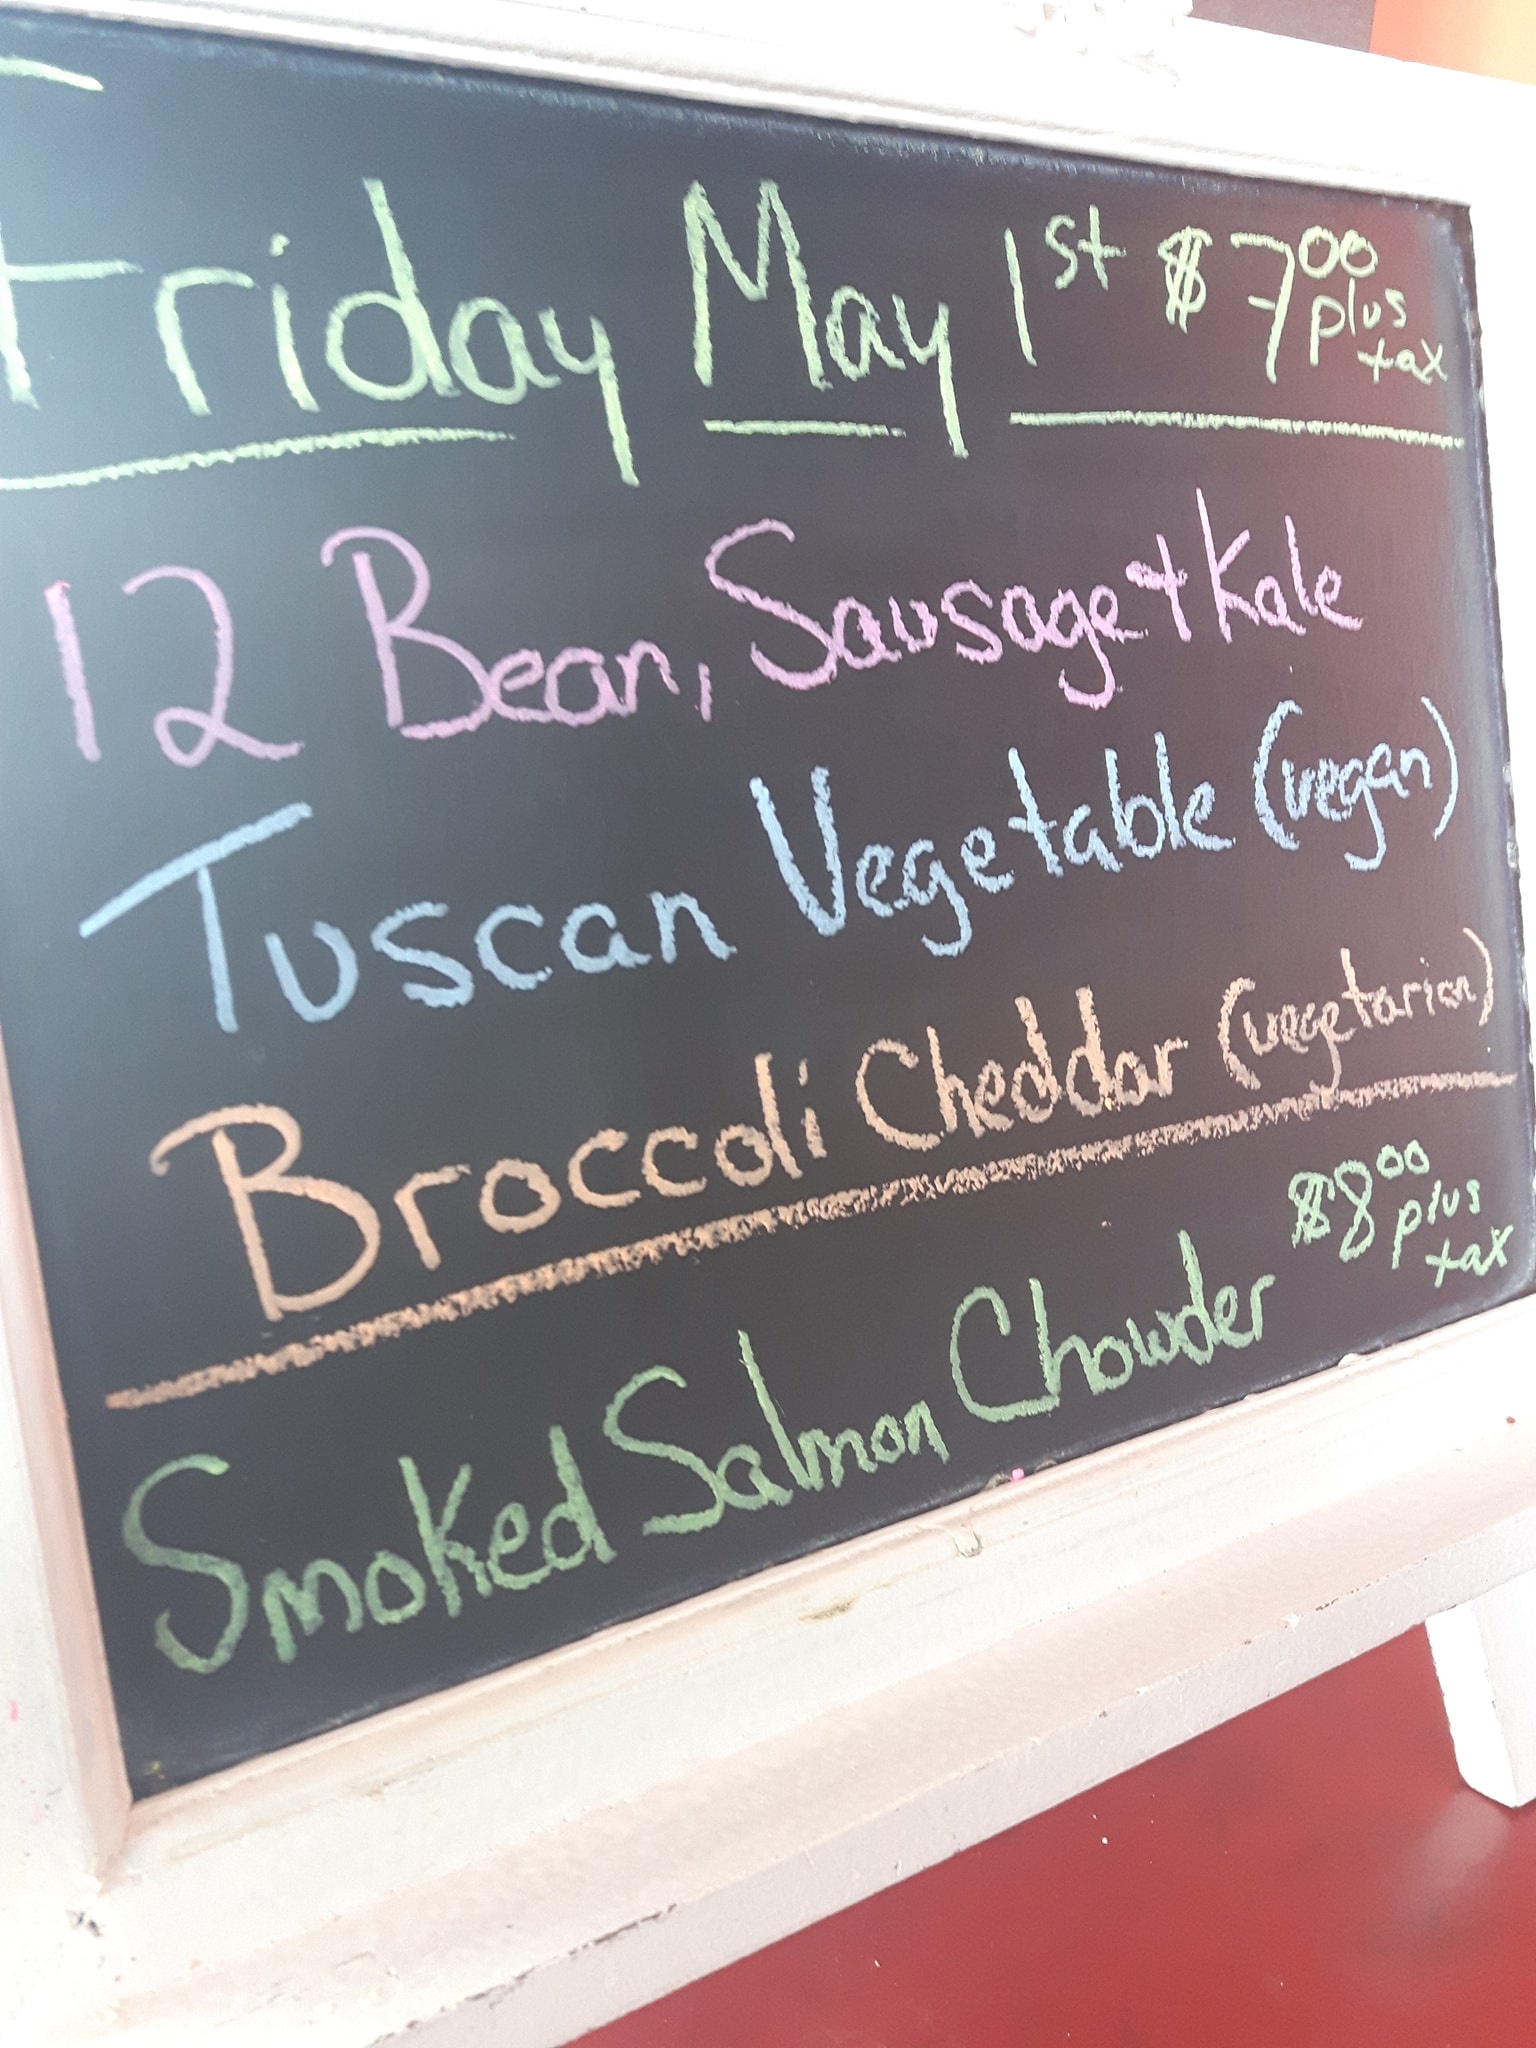 Friday May 1st $7.00 plus tax
12 Bean, Sausage + Kale
Tuscan Vegetable (vegan)
Broccoli Cheddar (vegetarian)
$8.00 plus tax
Smoked Salmon Chowder